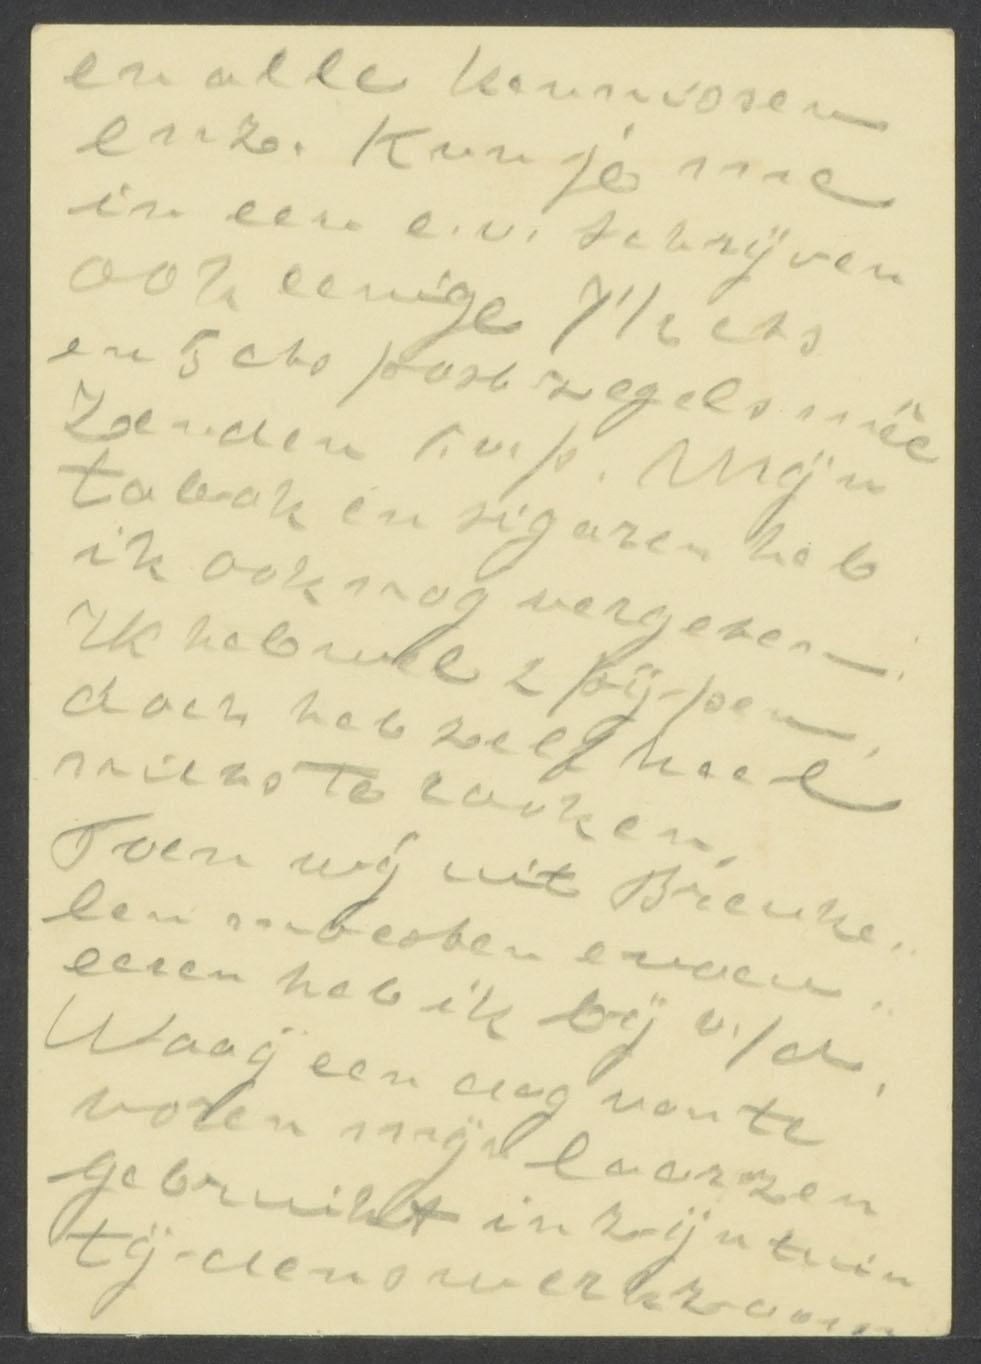 en alle kennissen
enz. Kun je me
in een e.v. schrijven
ook eenige 7½ cts
en 5 cts postzegels mee
zenden s.v.p. Mijn
tabak en sigaren heb
ik ook nog vergeten.
Ik heb wel 2 pijpen,
doch heb zelf heel
niets te rooken.
Toen wij uit Breuke-
len moesten evacu-
eeren heb ik bij v/d.
Waaij een dag van te
voren mijn laarzen
gebruikt in zijn tuin
tijdens werkzaam